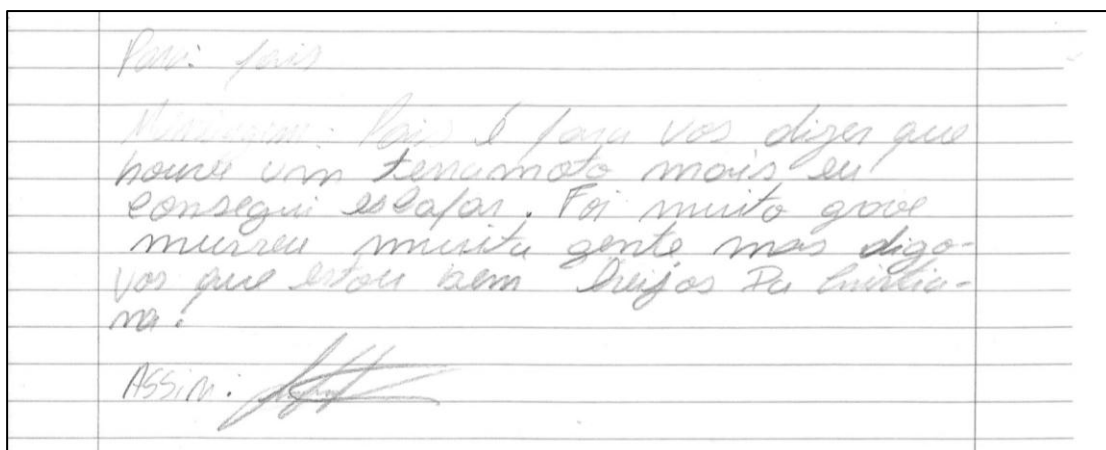 Para: pais
Mensagem: Pais é para vos dizer que
houve um terramoto mais eu
consegui escapar. Foi muito grave
murreu muita gente mas digo-
vos que estou bem beijos Da Cristia-
na.
Assin: